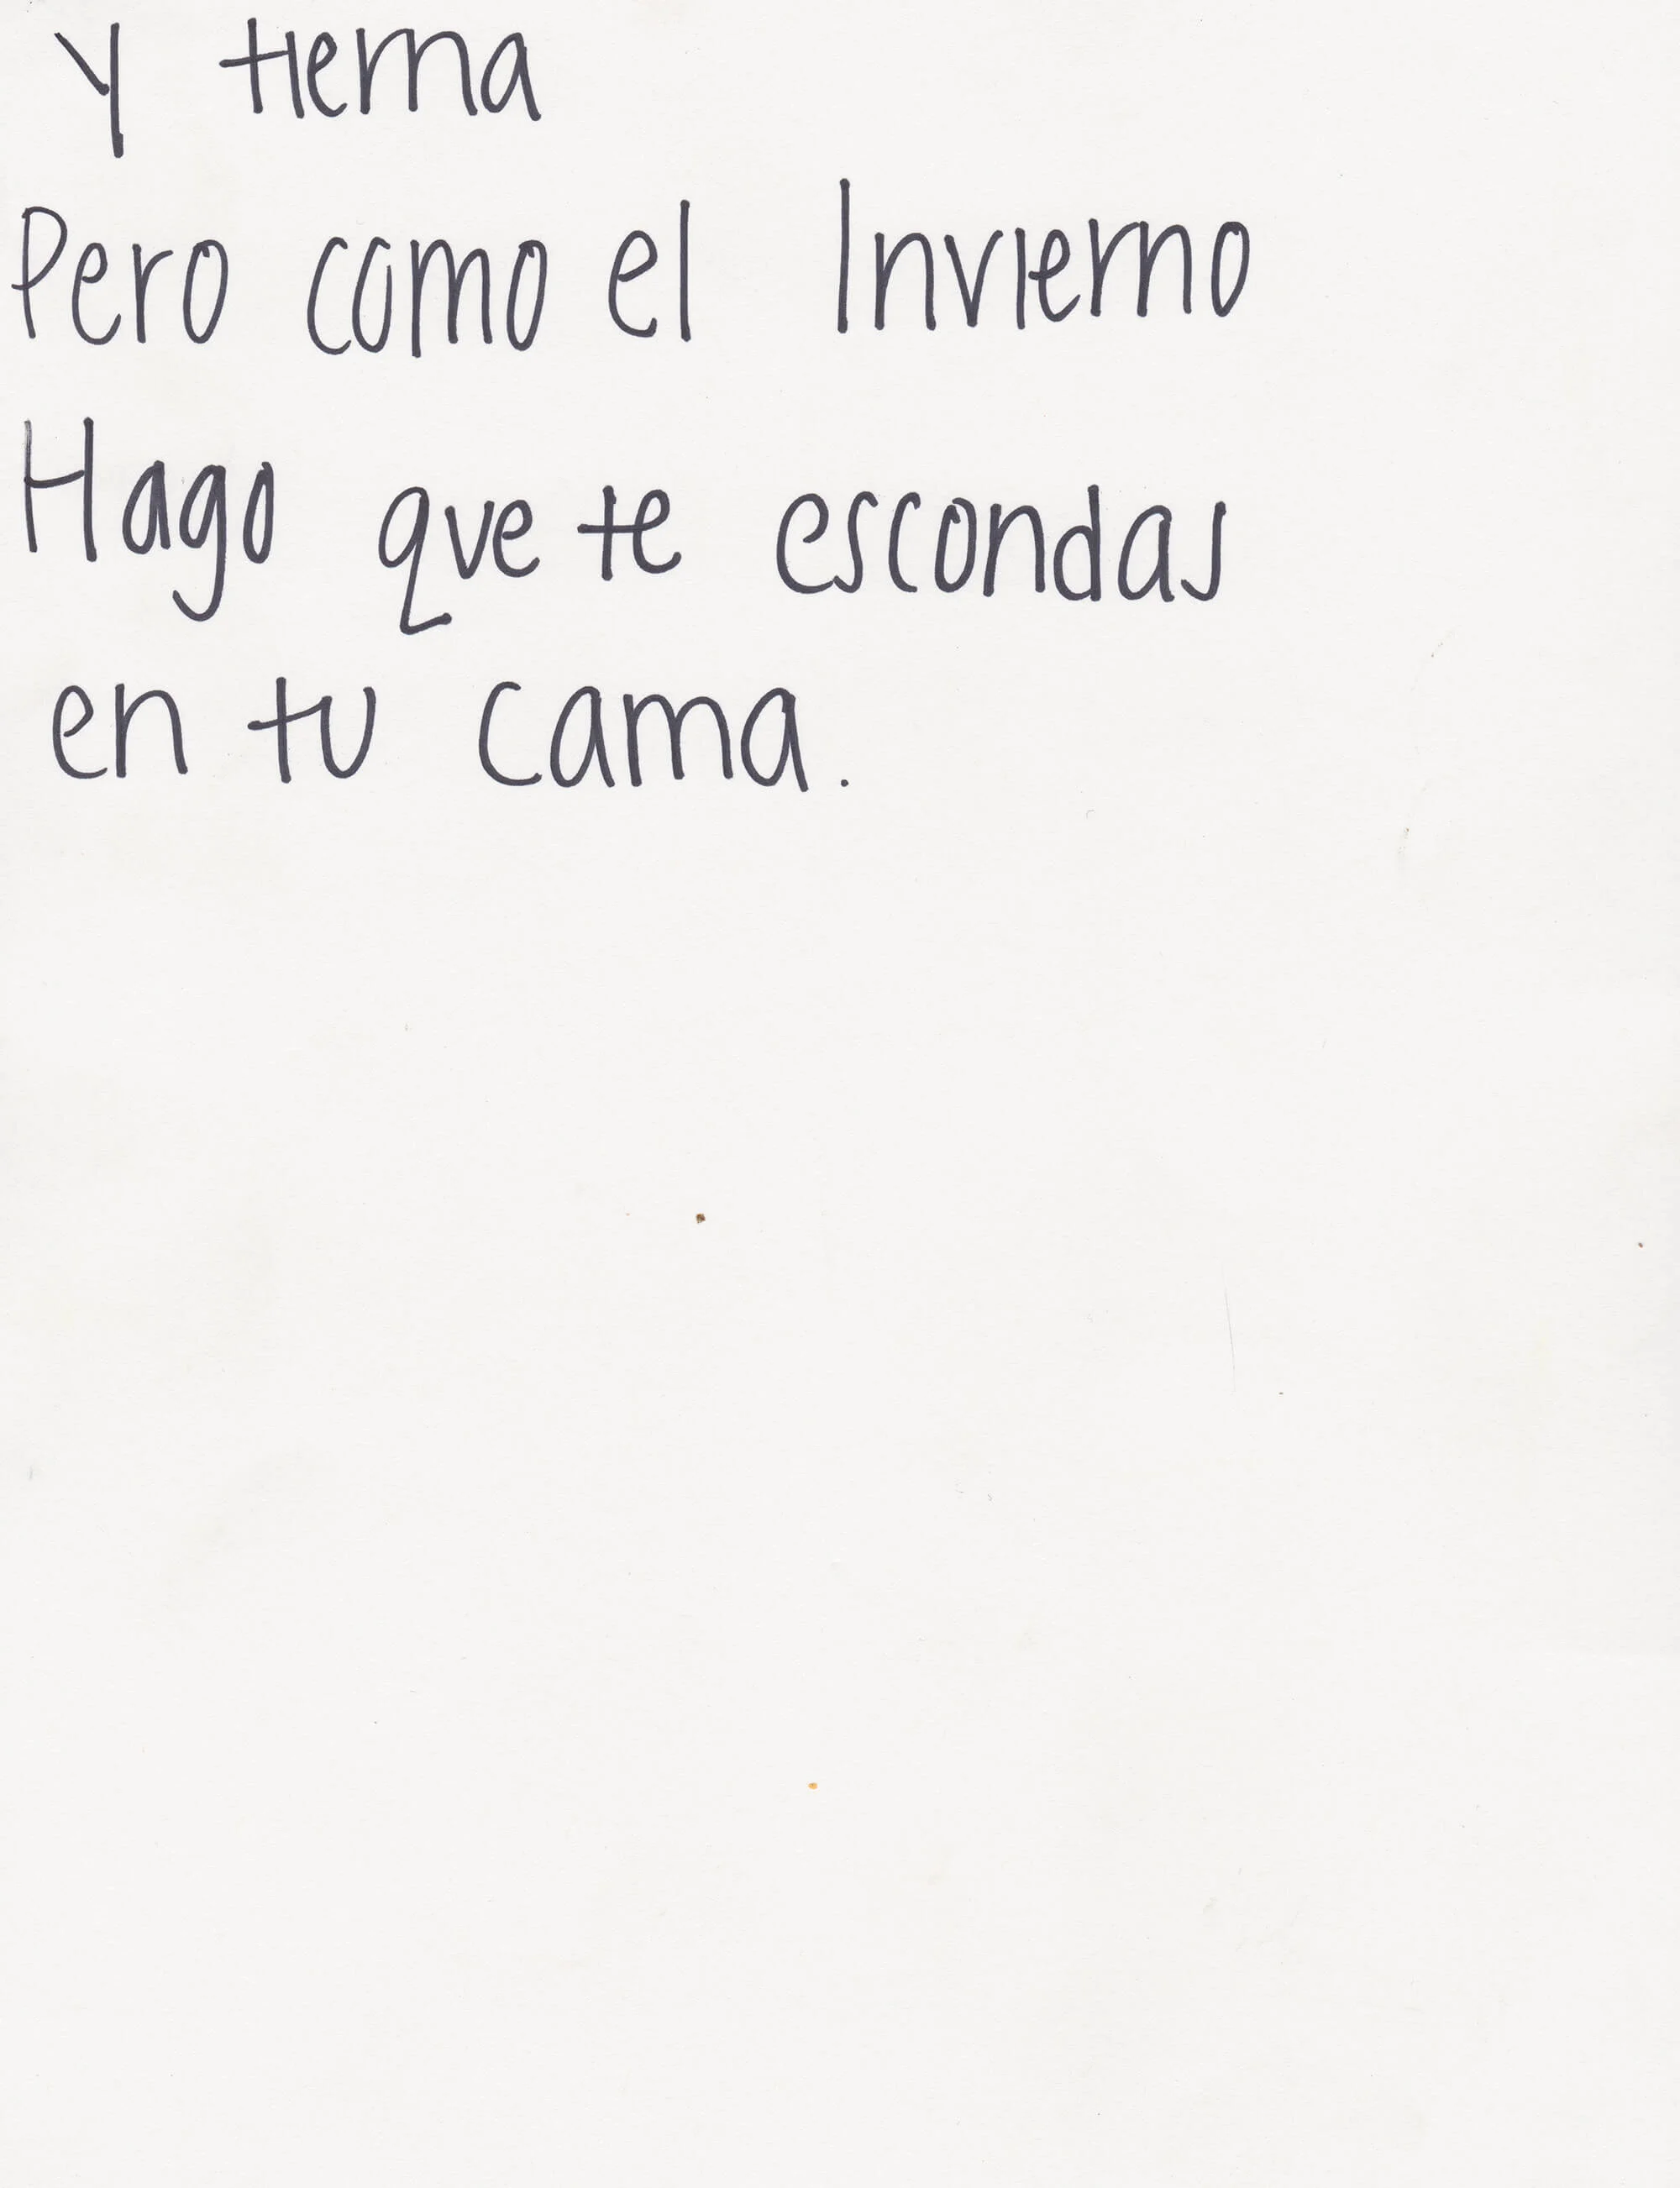 Y tierna
Pero como el Invierno
Hago que te escondas
en tu cama.